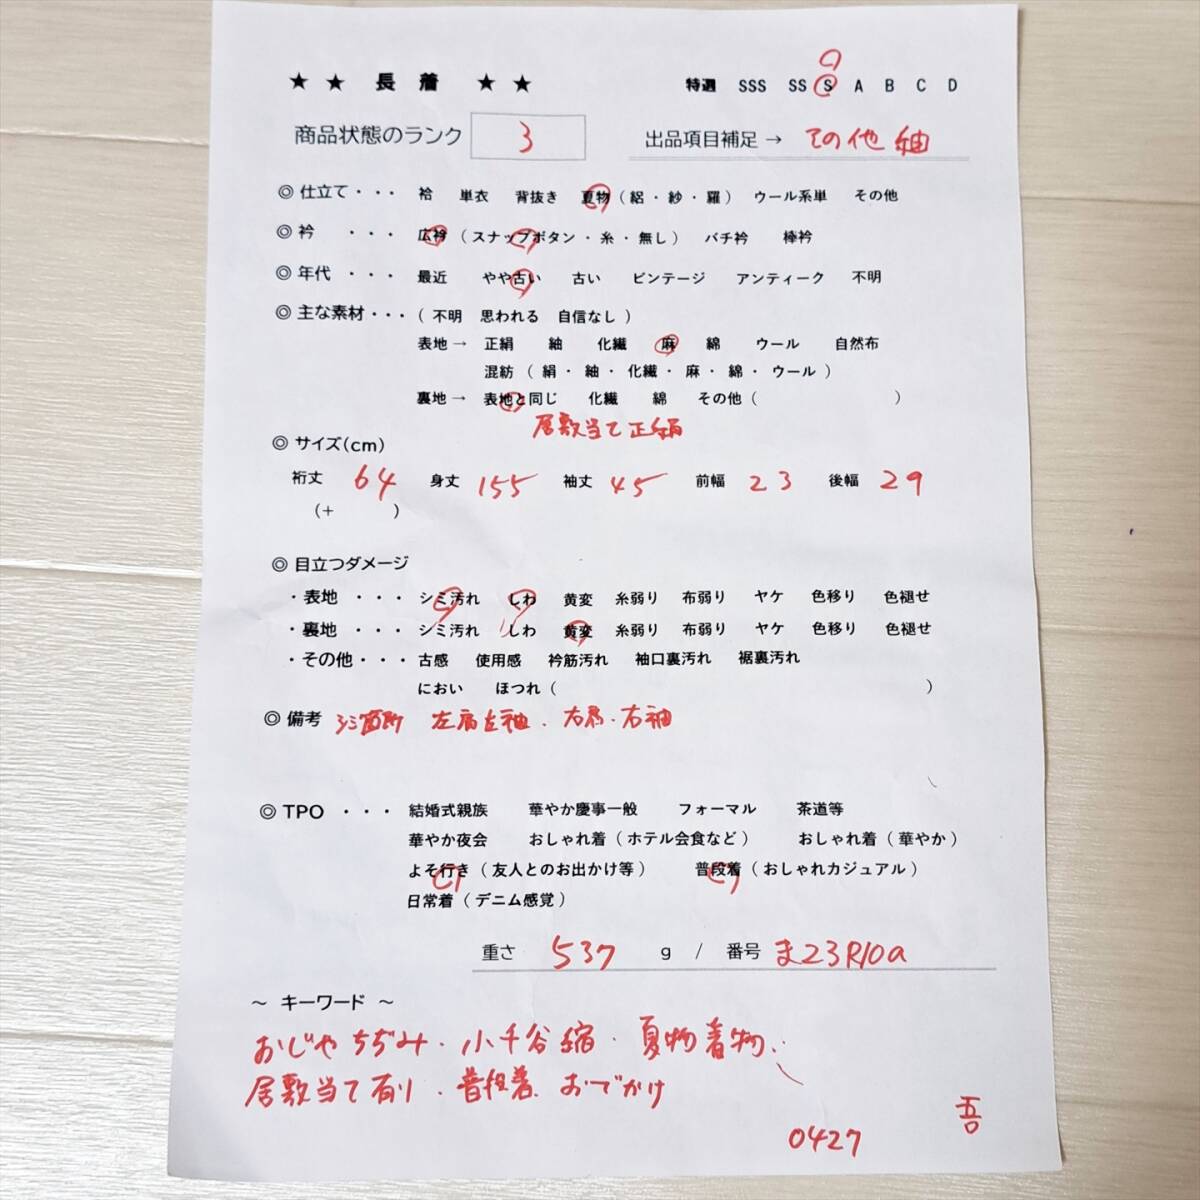 ★ ★ 長着 ★ ★ 特選 SSS SS S A B C D
商品状態のランク 3 出品項目補足 → その他 紬
◎ 仕立て・・・ 袷 単衣 背抜き 夏物 ( 絽 ・ 紗 ・ 羅 ) ウール系単 その他
◎ 衿 ・・・ 広衿 ( スナップボタン ・ 糸 ・ 無し ) バチ衿 棒衿
◎ 年代 ・・・ 最近 やや古い 古い ビンテージ アンティーク 不明
◎ 主な素材・・・ ( 不明 思われる 自信なし )
表地 → 正絹 紬 化繊 麻 綿 ウール 自然布
混紡 ( 絹 ・ 紬 ・ 化繊 ・ 麻 ・ 綿 ・ ウール )
裏地 → 表地と同じ 化繊 綿 その他 ( )
居敷当て正絹
◎ サイズ(cm)
裄丈 64 身丈 155 袖丈 45 前幅 23 後幅 29
(+ )
◎ 目立つダメージ
・ 表地 ・・・ シミ汚れ しわ 黄変 糸弱り 布弱り ヤケ 色移り 色褪せ
・ 裏地 ・・・ シミ汚れ しわ 黄変 糸弱り 布弱り ヤケ 色移り 色褪せ
・ その他・・・ 古感 使用感 衿筋汚れ 袖口裏汚れ 裾裏汚れ
におい ほつれ ( )
◎ 備考 シミ箇所 左肩左袖 . 右肩 . 右袖
◎ TPO ・・・ 結婚式親族 華やか慶事一般 フォーマル 茶道等
華やか夜会 おしゃれ着 ( ホテル会食など ) おしゃれ着 ( 華やか )
よそ行き ( 友人とのお出かけ等 ) 普段着 ( おしゃれカジュアル )
日常着 ( デニム感覚 )
重さ 537 g / 番号 ま23R10a
～ キーワード ～
おじやちぢみ . 小千谷縮 . 夏物着物 .
居敷当て有り . 普段着 . おでかけ
0427